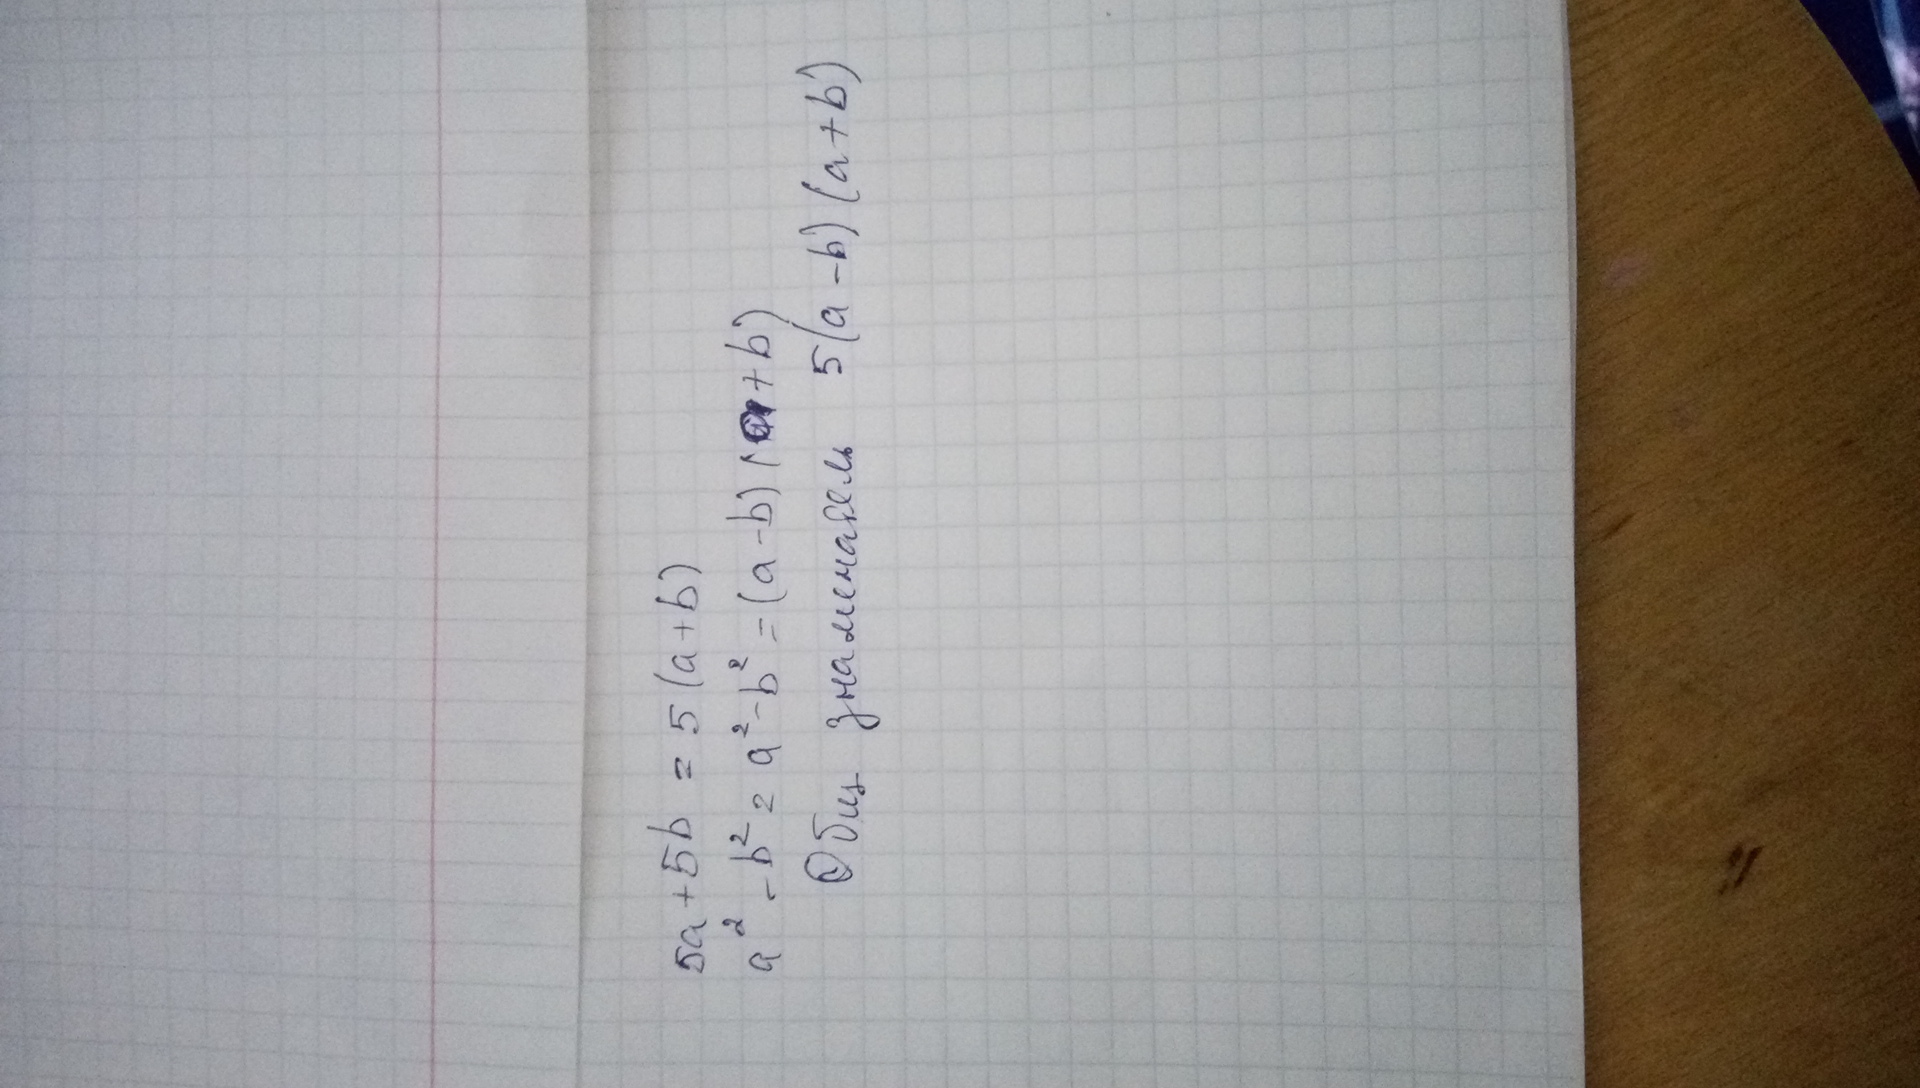 5a+5b = 5(a+b)
a² - b² = a² - b² = (a-b)(a+b)
Общ знаменатель 5(a-b)(a+b)